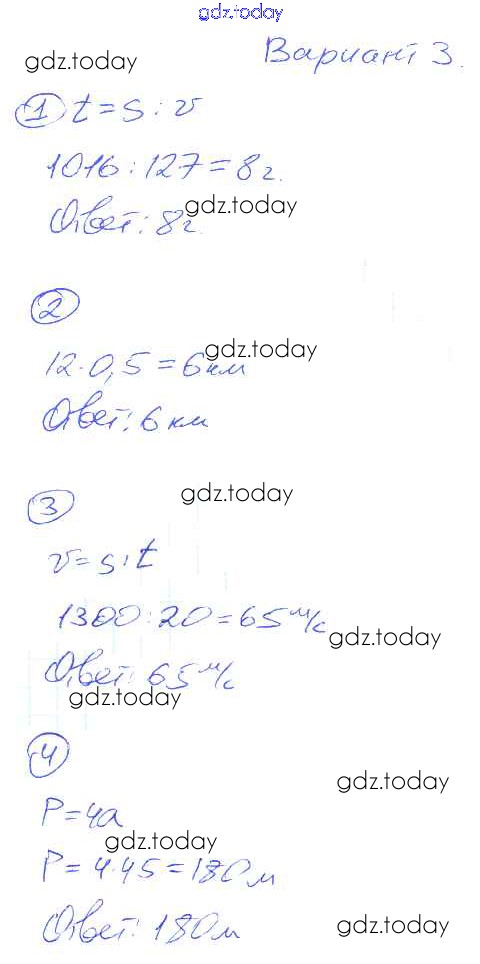 gdz.today
Вариант 3.
gdz.today
1 t = s : v
1016 : 127 = 8 г.
gdz.today
Ответ: 8 г.
2
gdz.today
12 · 0,5 = 6 км
Ответ: 6 км
gdz.today
3
v = s : t
1300 : 20 = 65 м/с
gdz.today
Ответ: 65 м/с
gdz.today
4
gdz.today
P = 4a
gdz.today
P = 4 · 45 = 180 м
Ответ: 180 м
gdz.today